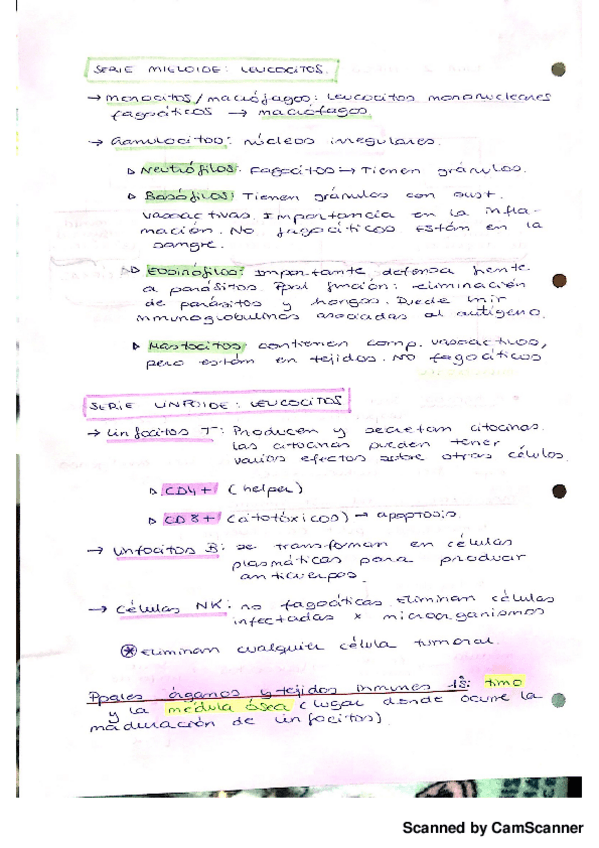 SERIE MIELOIDE: LEUCOCITOS.
→ Monocitos/macrófagos: leucocitos mononucleares
fagocíticos → macrófagos
→ Granulocitos: núcleos irregulares.
▷ Neutrófilos: Fagocitos → Tienen gránulos.
▷ Basófilos: Tienen gránulos con sust.
vasoactivas. Importancia en la infla-
mación. No fagocíticos están en la
sangre.
▷ Eosinófilos: Importante defensa frente
a parásitos. Ppal función: eliminación
de parásitos y hongos. Puede unir
inmunoglobulinas asociadas al antígeno.
▷ Mastocitos: contienen comp. vasoactivos,
pero están en tejidos. NO fagocíticos
SERIE LINFOIDE: LEUCOCITOS
→ Linfocitos T: Producen y secretan citocinas.
las citocinas pueden tener
varios efectos sobre otras células.
▷ CD4+ (helper)
▷ CD8+ (citotóxicos) → apoptosis.
→ Linfocitos B: se transforman en células
plasmáticas para producir
anticuerpos.
→ Células NK: no fagocíticas. Eliminan células
infectadas x microorganismos
* Eliminan cualquier célula tumoral.
Ppales órganos y tejidos inmunes 1º: timo
y la médula ósea (lugar donde ocurre la
maduración de linfocitos)
Scanned by CamScanner